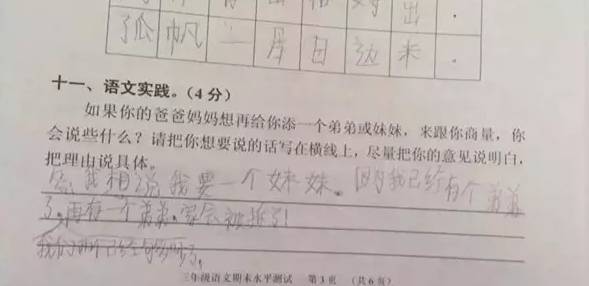 孤帆一片日边来.
十一、语文实践。(4分)
如果你的爸爸妈妈想再给你添一个弟弟或妹妹，来跟你商量，你
会说些什么？请把你想要说的话写在横线上，尽量把你的意见说明白，
把理由说具体。
我想说我要一个妹妹。因为我已经有个弟弟
了。再有一个弟弟，家会被拆了!
我们两个已经够多了。
三年级语文期末水平测试 第3页 (共6页)